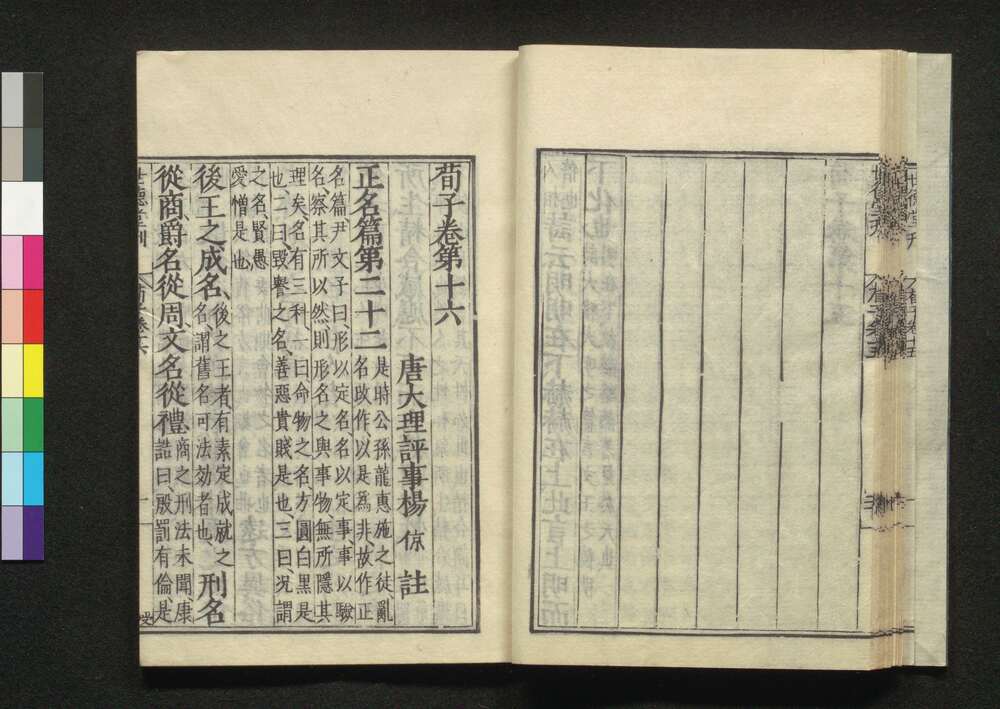 世德堂刊 荀子卷十五
荀子卷第十六
唐大理評事楊倞 註
正名篇第二十二
是時公孫龍惠施之徒、亂
名改作、以是為非、故作正
名篇尹文子曰、形以定名、名以定事、事以驗
名、察其所以然、則形名之與事物、無所隱其
理矣、名有三科、一曰命物之名、方圓白黑是
也、二曰毀譽之名、善惡貴賤是也、三曰况謂
之名、賢愚
愛憎是也
後王之成名、
後之王者、有素定成就之
名、謂舊名可法効者也
刑名
從商爵名從周文名從禮
商之刑法未聞、康
誥曰、殷罰有倫、是